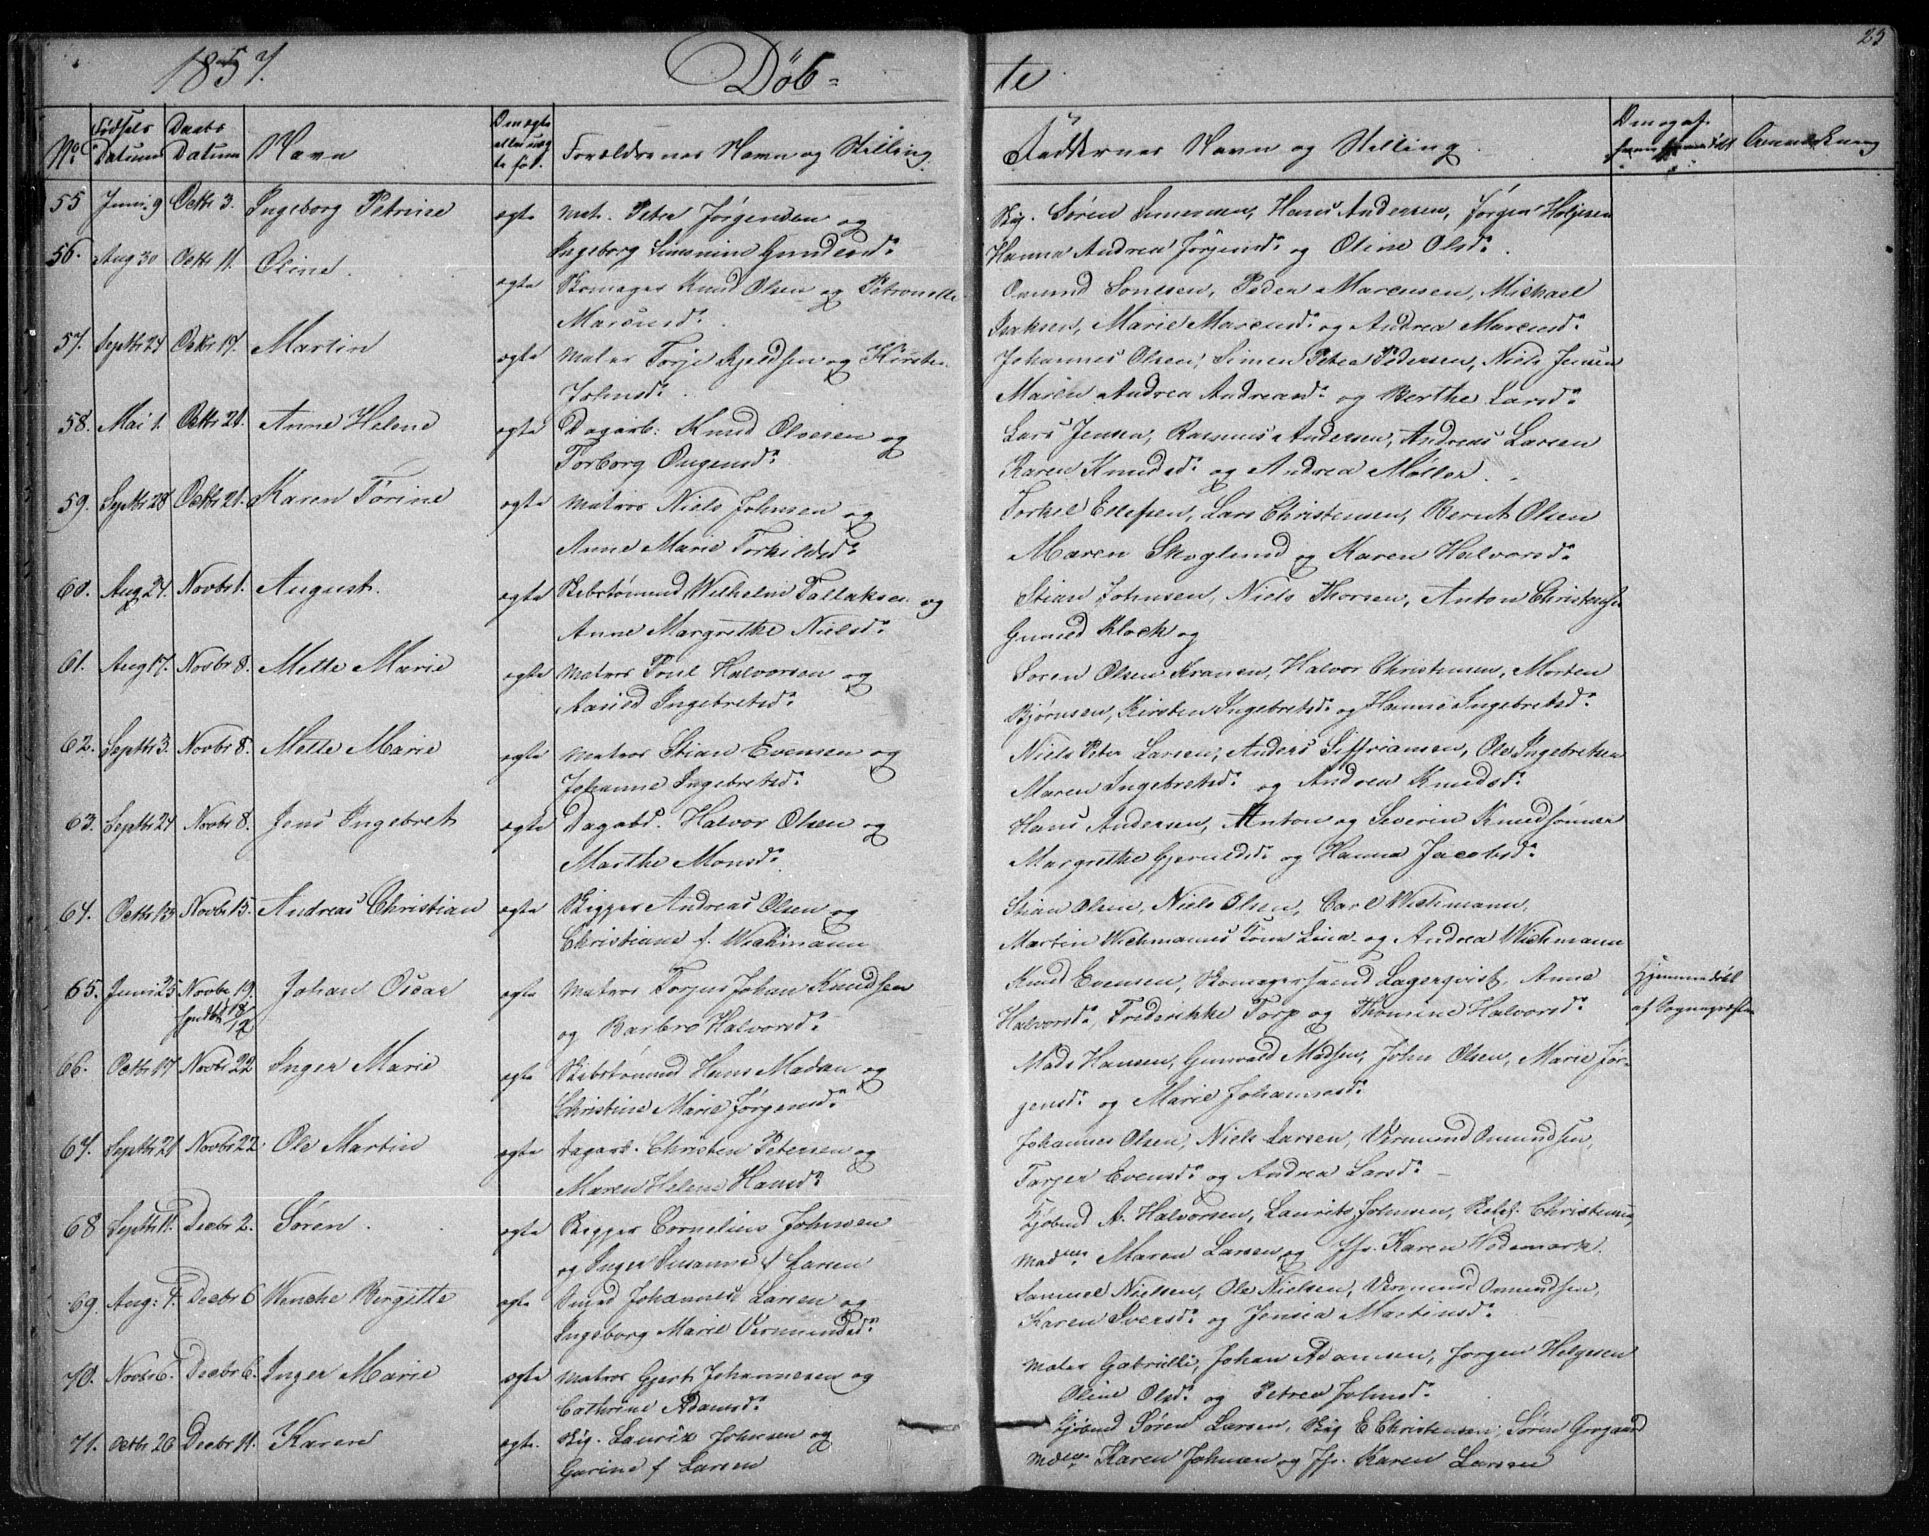 1857. Döb=
te 23
No Fødsels Datum Daabs Datum Navn Om ægte eller uægte fød. Forældrenes Navn og Stilling.
Faddernes Navn og Stilling. Anmærkning
55 Juni 9 Octbr 3. Ingeborg Petrine ægte Mat. Peter Jørgensen og
Ingeborg Gundersd.
Søren Hans Andersen, Jørgen Holjesen
Hanna Andrea Jörgensd. og Oline Olsd.
56. Aug 30 Octbr 11. Oline ægte Skomager Knud Olsen og Petronelle
Marcusd.
Omund Peder Marcusen, Michael
Isaksen, Marie Marcusd. og Andrea Marcusd.
57. Septbr 24 Octbr 17. Martin ægte Matros Torje Kjeldsen og Kirsten
Johnsd.
Johannes Olsen, Simen Peter Pedersen, Niels Jensen
Maren Andrea Andreasd. og Berthe Larsd.
58. Mai 1. Octbr 21. Anne Helene ægte Dagarb. Knud Olsen og
Torborg
Lars Jensen, Rasmus Andersen, Andreas Larsen
Karen Knudsd. og Andrea Møller.
59. Septbr 28 Octbr 21. Karen Torine ægte Matros Niels Johnsen og
Anne Marie Torkildsd.
Torkil Ellefsen, Lars Christensen, Bernt Olsen
Maren Skoglund og Karen Halvorsd.
60. Aug 24. Novbr 1. August ægte Rebslagersvend Wilhelm Tallaksen og
Anne Margrethe Nielsd.
Stian Johnsen, Niels Thorsen, Anton Christensen
Gunild Klock og
61. Aug 17. Novbr 8. Mette Marie ægte Matros Poul Halvorsen og
Aasild Ingebretsd.
Søren Olsen Kranen, Halvor Christensen, Morten
Bjørnsen, Kirsten Ingebretsd. og Hanne Ingebretsd.
62. Septbr 3. Novbr 8. Mette Marie ægte Matros Stian Evensen og
Johanne Ingebretsd.
Niels Peter Larsen, Anders Siffriansen, Ole Ingebretsen
Maren Ingebretsd. og Andrea Knudsd.
63. Septbr 24 Novbr 8. Jens Ingebret ægte Dagabd. Halvor Olsen og
Marthe Monsd.
Hans Andersen, Anton og Severin Knudsønner
Margrethe Gjeruldsd. og Hanna Jacobsd.
64. Octbr 13 Novbr 15. Andreas Christian ægte Skipper Andreas Olsen og
Christiane f. Wichmann
Stian Olsen, Niels Olsen, Carl Wichmann,
Martin Wichmanns Kone Lina og Andrea Wichmann
65. Juni 25 Novbr 19. Johan Oscar ægte Matros Torjus Johan Knudsen
og Barbro Halvorsd.
Knud Evensen, Skomagersvend Lagerqvist, Anne
Halvorsd., Frederikke Torp og Thomine Halvorsd.
Hjemmedöbt
af Sognepræsten
66. Octbr 17 Novbr 22 Inger Marie ægte Hans Madsen og
Christine Marie Jørgensd.
Mads Hansen, Gunvald Madsen, John Olsen, Marie Jør-
gensd. og Marie Johannesd.
67. Septbr 21 Novbr 22 Ole Martin ægte Dagarb. Christen Petersen og
Maren Helene Hansd.
Johannes Olsen, Niels Larsen, Vermund Omundsen,
Torjer Evensd. og Andrea Larsd.
68 Septbr 11. Decbr 2. Søren. ægte Skipper Cornelius Johnsen
og Inger Susanne f Larsen
Kjøbmd A. Halvorsen, Laurits Johnsen, Christensen,
Maren Larsen og Jfr. Karen Wedemark.
69. Aug: 4. Decbr 6 Wenche Birgitte ægte Smed Johannes Larsen og
Ingeborg Marie Vermundsd.
Samuel Nielsen, Ole Nielsen, Vermund Omundsen,
Karen Iversd. og Jensia Martinsd.
70. Novbr 6. Decbr 6. Inger Marie ægte Matros Gjert Johannesen og
Cathrine Adamsd.
Johan Adamsen, Jørgen Helgesen
Oline Olsd. og Petrea Johnsd.
71. Octbr 26 Decbr 11. Karen ægte. Skip. Lauriz Johnsen og
Gurine f Larsen
Kjøbmd Søren Larsen, Skip E Christensen, Søren
Karen Johnsen og Jfr. Karen Larsen